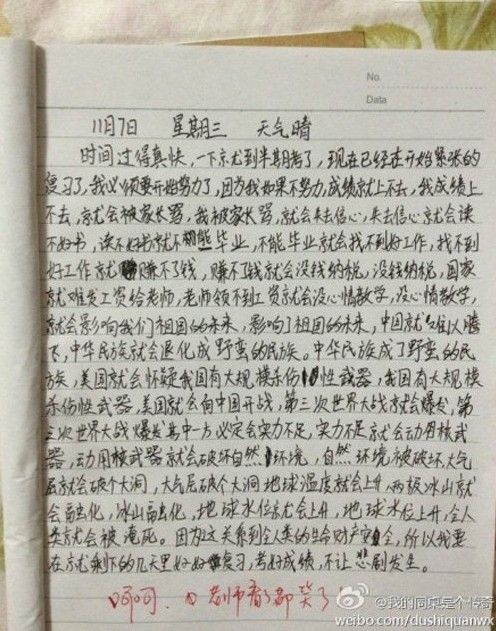 No.
Data
11月7日 星期三 天气晴
时间过得真快,一下就到半期考了,现在已经在开始紧张的
复习了,我必须要开始努力了,因为我如果不努力,成绩就上不去,我成绩上
不去,就会被家长骂,我被家长骂,就会失去信心,失去信心就会读
不好书,读不好书就不能毕业,不能毕业就会找不到好工作,找不到
好工作就赚不了钱,赚不了钱就会没钱纳税,没钱纳税,国家
就难发工资给老师,老师领不到工资就会没心情教学,没心情教学,
就会影响我们祖国的未来,影响了祖国的未来,中国就难以腾
飞,中华民族就会退化成野蛮的民族。中华民族成了野蛮的民
族,美国就会怀疑我国有大规模杀伤性武器,我国有大规模
杀伤性武器,美国就会向中国开战,第三次世界大战就会爆发,第
三次世界大战爆发其中一方必定会实力不足,实力不足就会动用核武
器,动用核武器就会破坏自然环境,自然环境被破坏,大气
层就会破个大洞,大气层破个大洞地球温度就会上升,两极冰山就
会融化,冰山融化,地球水位就会上升,地球水位上升,全人
类就会被淹死。因为这关系到全人类的生命财产安全,所以我要
在就剩下的几天里好好复习,考好成绩,不让悲剧发生。
呵呵,老师看了都笑了!
@我的同桌是个传奇
weibo.com/dushiquanwx